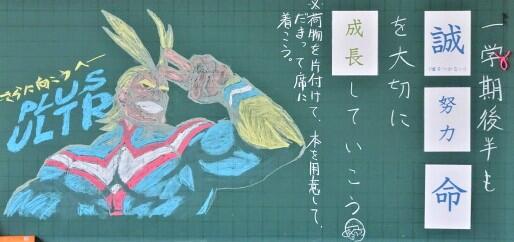 一学期後半も
誠
努力
命
を大切に
成長していこう
※荷物を片付けて、本を用意して、
だまって席に
着こう。
さらに向こうへ
PLUS
ULTR